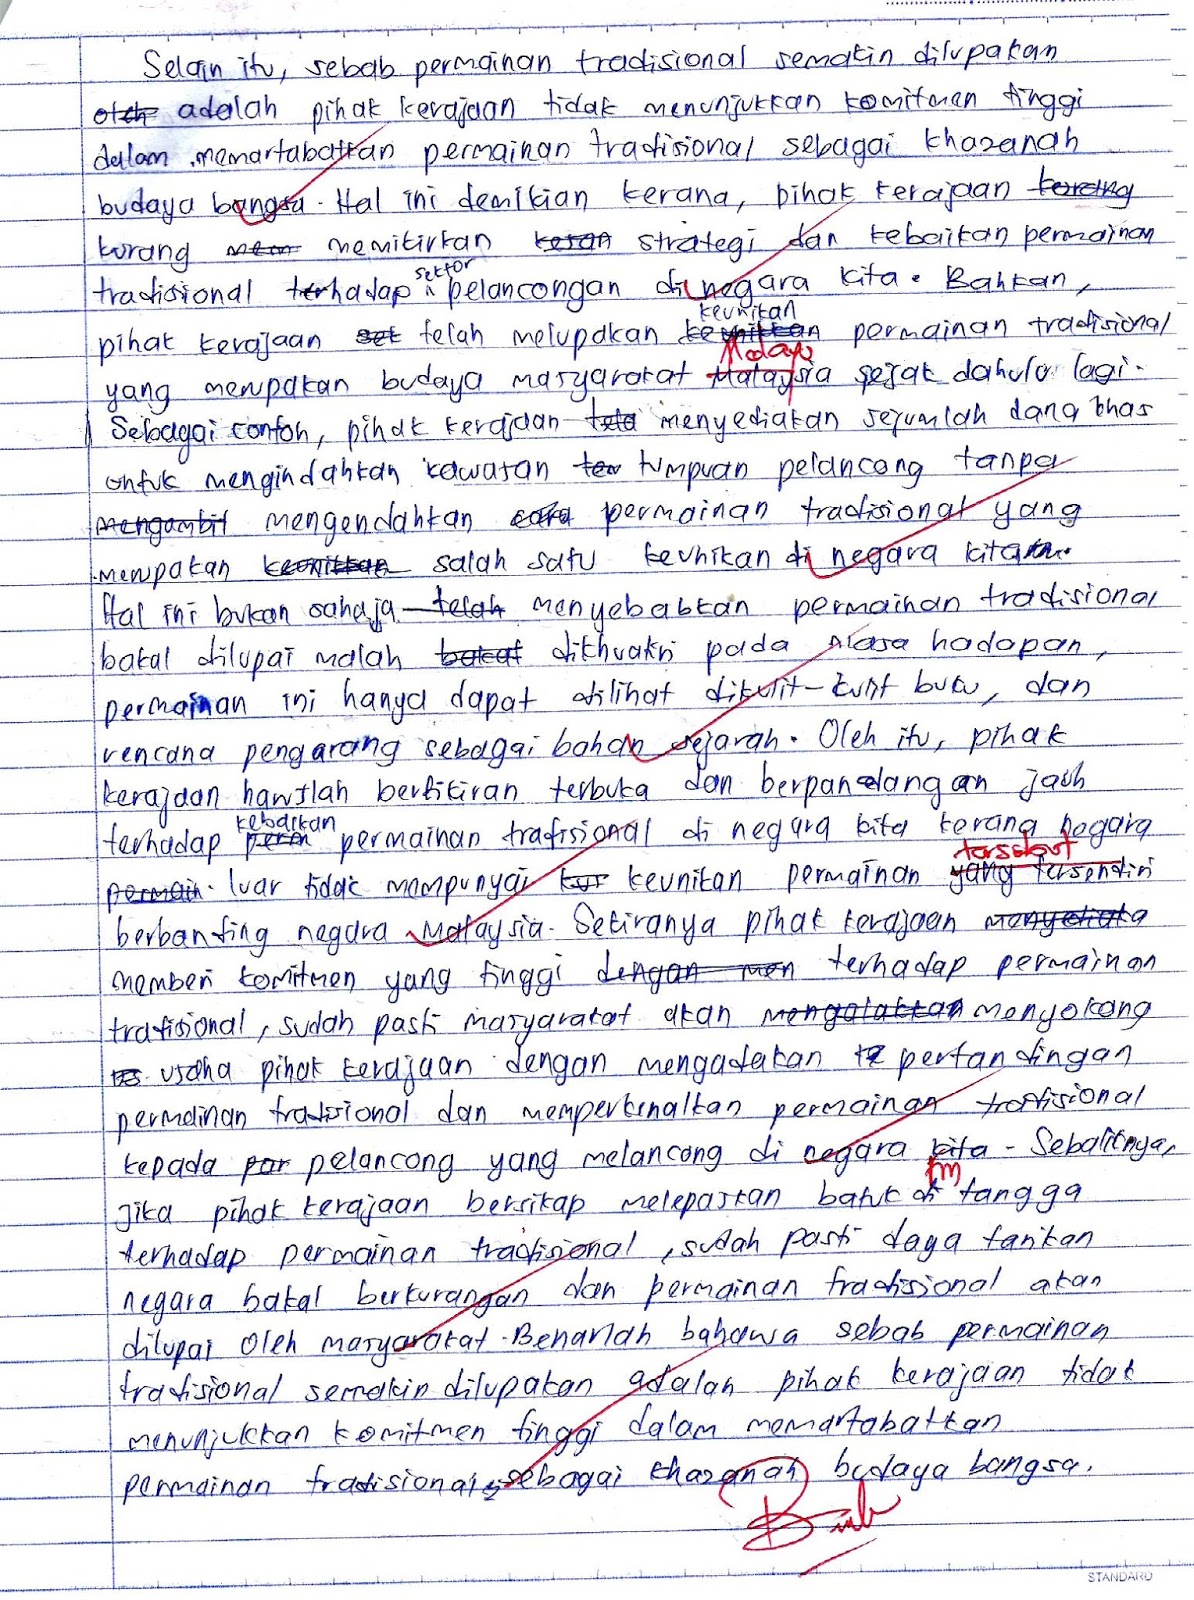 Selain itu, sebab permainan tradisional semakin dilupakan
oleh adalah pihak kerajaan tidak menunjukkan komitmen tinggi
dalam memartabatkan permainan tradisional sebagai khazanah
budaya bangsa. Hal ini demikian kerana, pihak kerajaan kerang
kurang mem memikirkan keran strategi dan kebaikan permainan
tradisional terhadap sektor pelancongan di negara kita. Bahkan,
pihak kerajaan set telah melupakan keunikkan keunikan permainan tradisional
yang merupakan budaya masyarakat Malaysia Melayu sejak dahulu lagi.
Sebagai contoh, pihak kerajaan tela menyediakan sejumlah dana khas
untuk mengindahkan kawasan tem tumpuan pelancong tanpa
mengambil mengendahkan cara permainan tradisional yang
merupakan keunikkan salah satu keunikan di negara kita
Hal ini bukan sahaja telah menyebabkan permainan tradisional
bakal dilupai malah bakat dikhuatiri pada masa hadapan,
permainan ini hanya dapat dilihat dikulit-kulit buku, dan
rencana pengarang sebagai bahan sejarah. Oleh itu, pihak
kerajaan haruslah berfikiran terbuka dan berpandangan jauh
terhadap kebaikan permainan tradisional di negara kita kerana negara
permain. luar tidak mempunyai kur keunikan permainan yang tersendiri tersebut
berbanting negara Malaysia. Sekiranya pihak kerajaan menyediaka
memberi komitmen yang tinggi dengan men terhadap permainan
tradisional, sudah pasti masyarakat akan mengalakkan menyokong
usaha pihak kerajaan dengan mengadakan pertandingan
permainan tradisional dan memperkenalkan permainan tradisional
kepada par pelancong yang melancong di negara kita. Sebaliknya,
Jika pihak kerajaan bersikap melepaskan batuk di tangga
terhadap permainan tradisional, sudah pasti daya tarikan
negara bakal berkurangan dan permainan tradisional akan
dilupai oleh masyarakat. Benarlah bahawa sebab permainan
tradisional semakin dilupakan adalah pihak kerajaan tidak
menunjukkan komitmen tinggi dalam memartabatkan
permainan tradisional sebagai khazanah budaya bangsa.
STANDARD